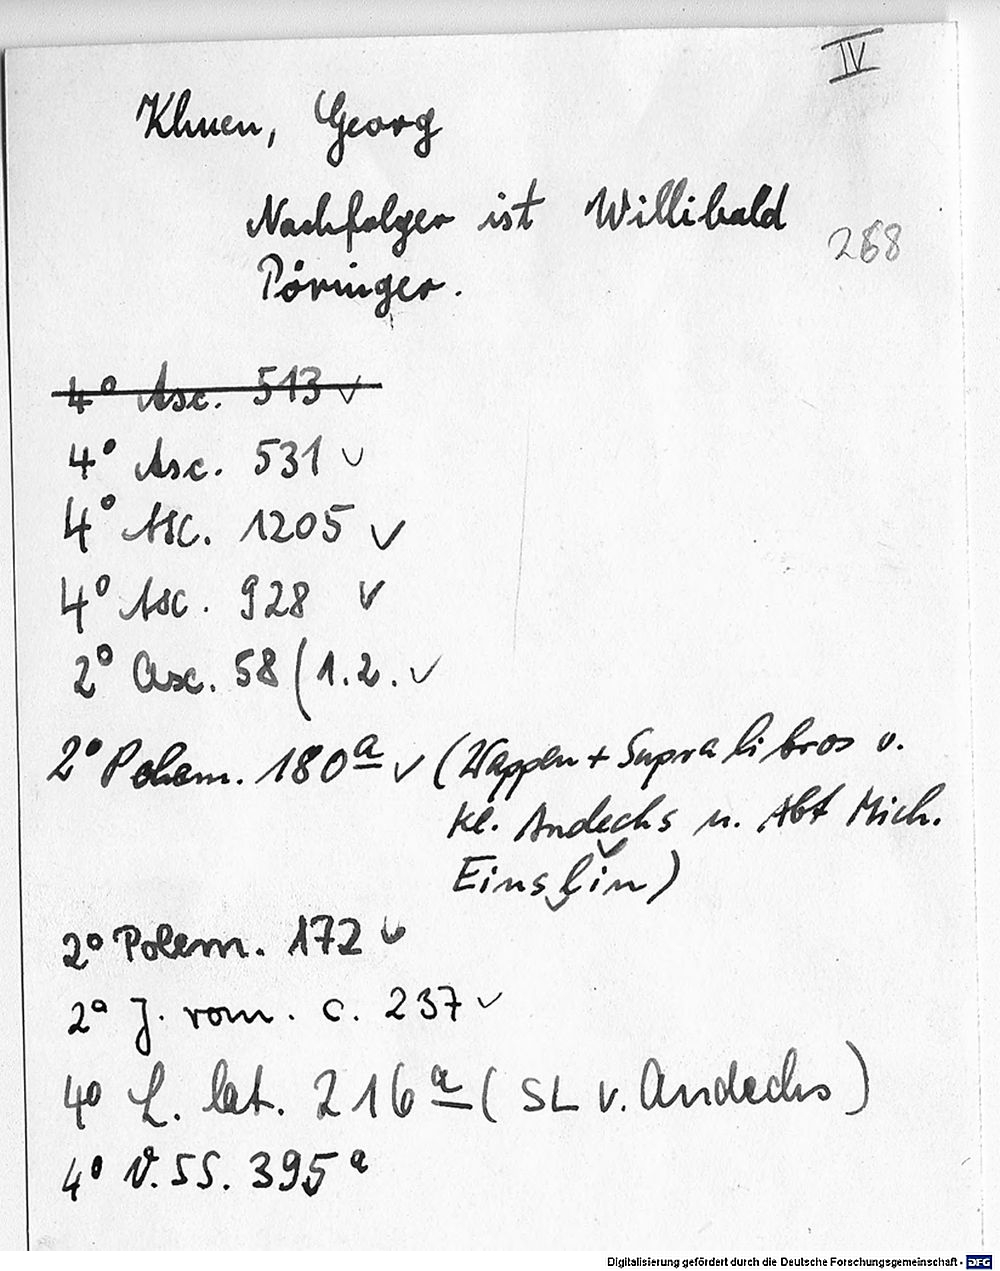 IV
Khuen, Georg
Nachfolger ist Willibald
268
Pöringer.
4° Asc. 513 ✓
4° Asc. 531 ✓
4° Asc. 1205 ✓
4° Asc. 928 ✓
2° Asc. 58 (1.2. ✓
2° Polem. 180a ✓ (Wappen + Supralibros v.
Kl. Andechs u. Abt Mich.
Einslin)
2° Polem. 172 ✓
2° J. rom. c. 237 ✓
4° L. lat. 216a (SL v. Andechs)
4° V. SS. 395a
Digitalisierung gefördert durch die Deutsche Forschungsgemeinschaft - DFG